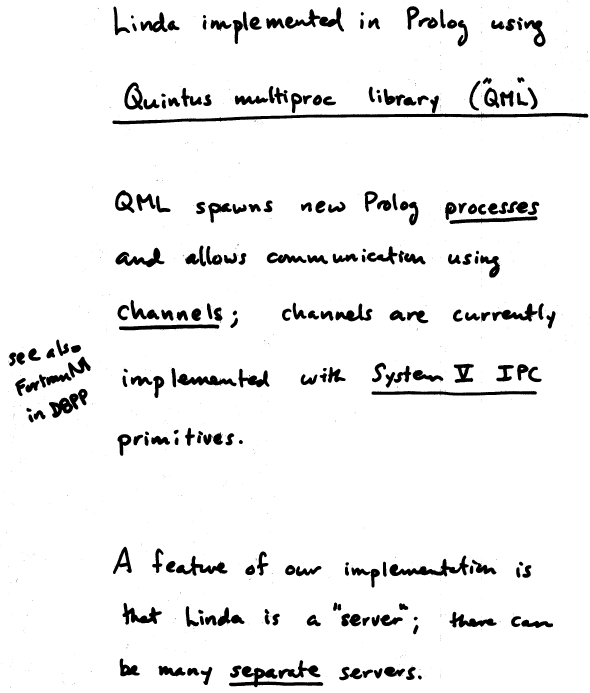 Linda implemented in Prolog using
Quintus multiproc library ("QML")
QML spawns new Prolog processes
and allows communication using
channels; channels are currently
implemented with System V IPC
primitives.
see also
FortranM
in DBPP
A feature of our implementation is
that Linda is a "server"; there can
be many separate servers.